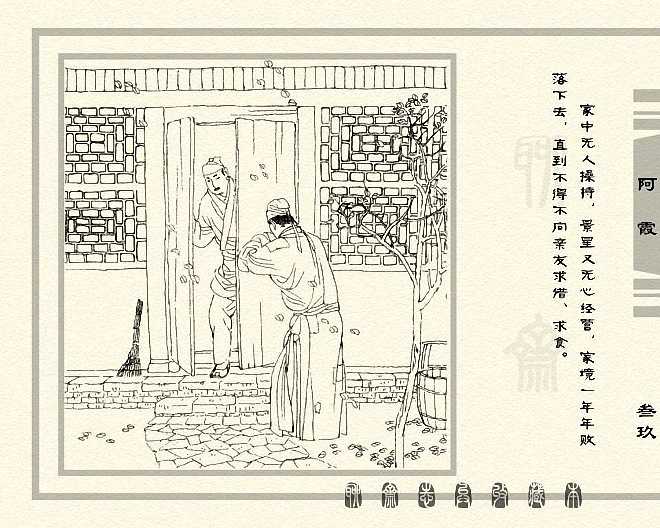 家中无人操持，景星又无心经营，家境一年年败
落下去，直到不得不向亲友求借、求食。
阿霞
叁玖
聊斋志异收藏本